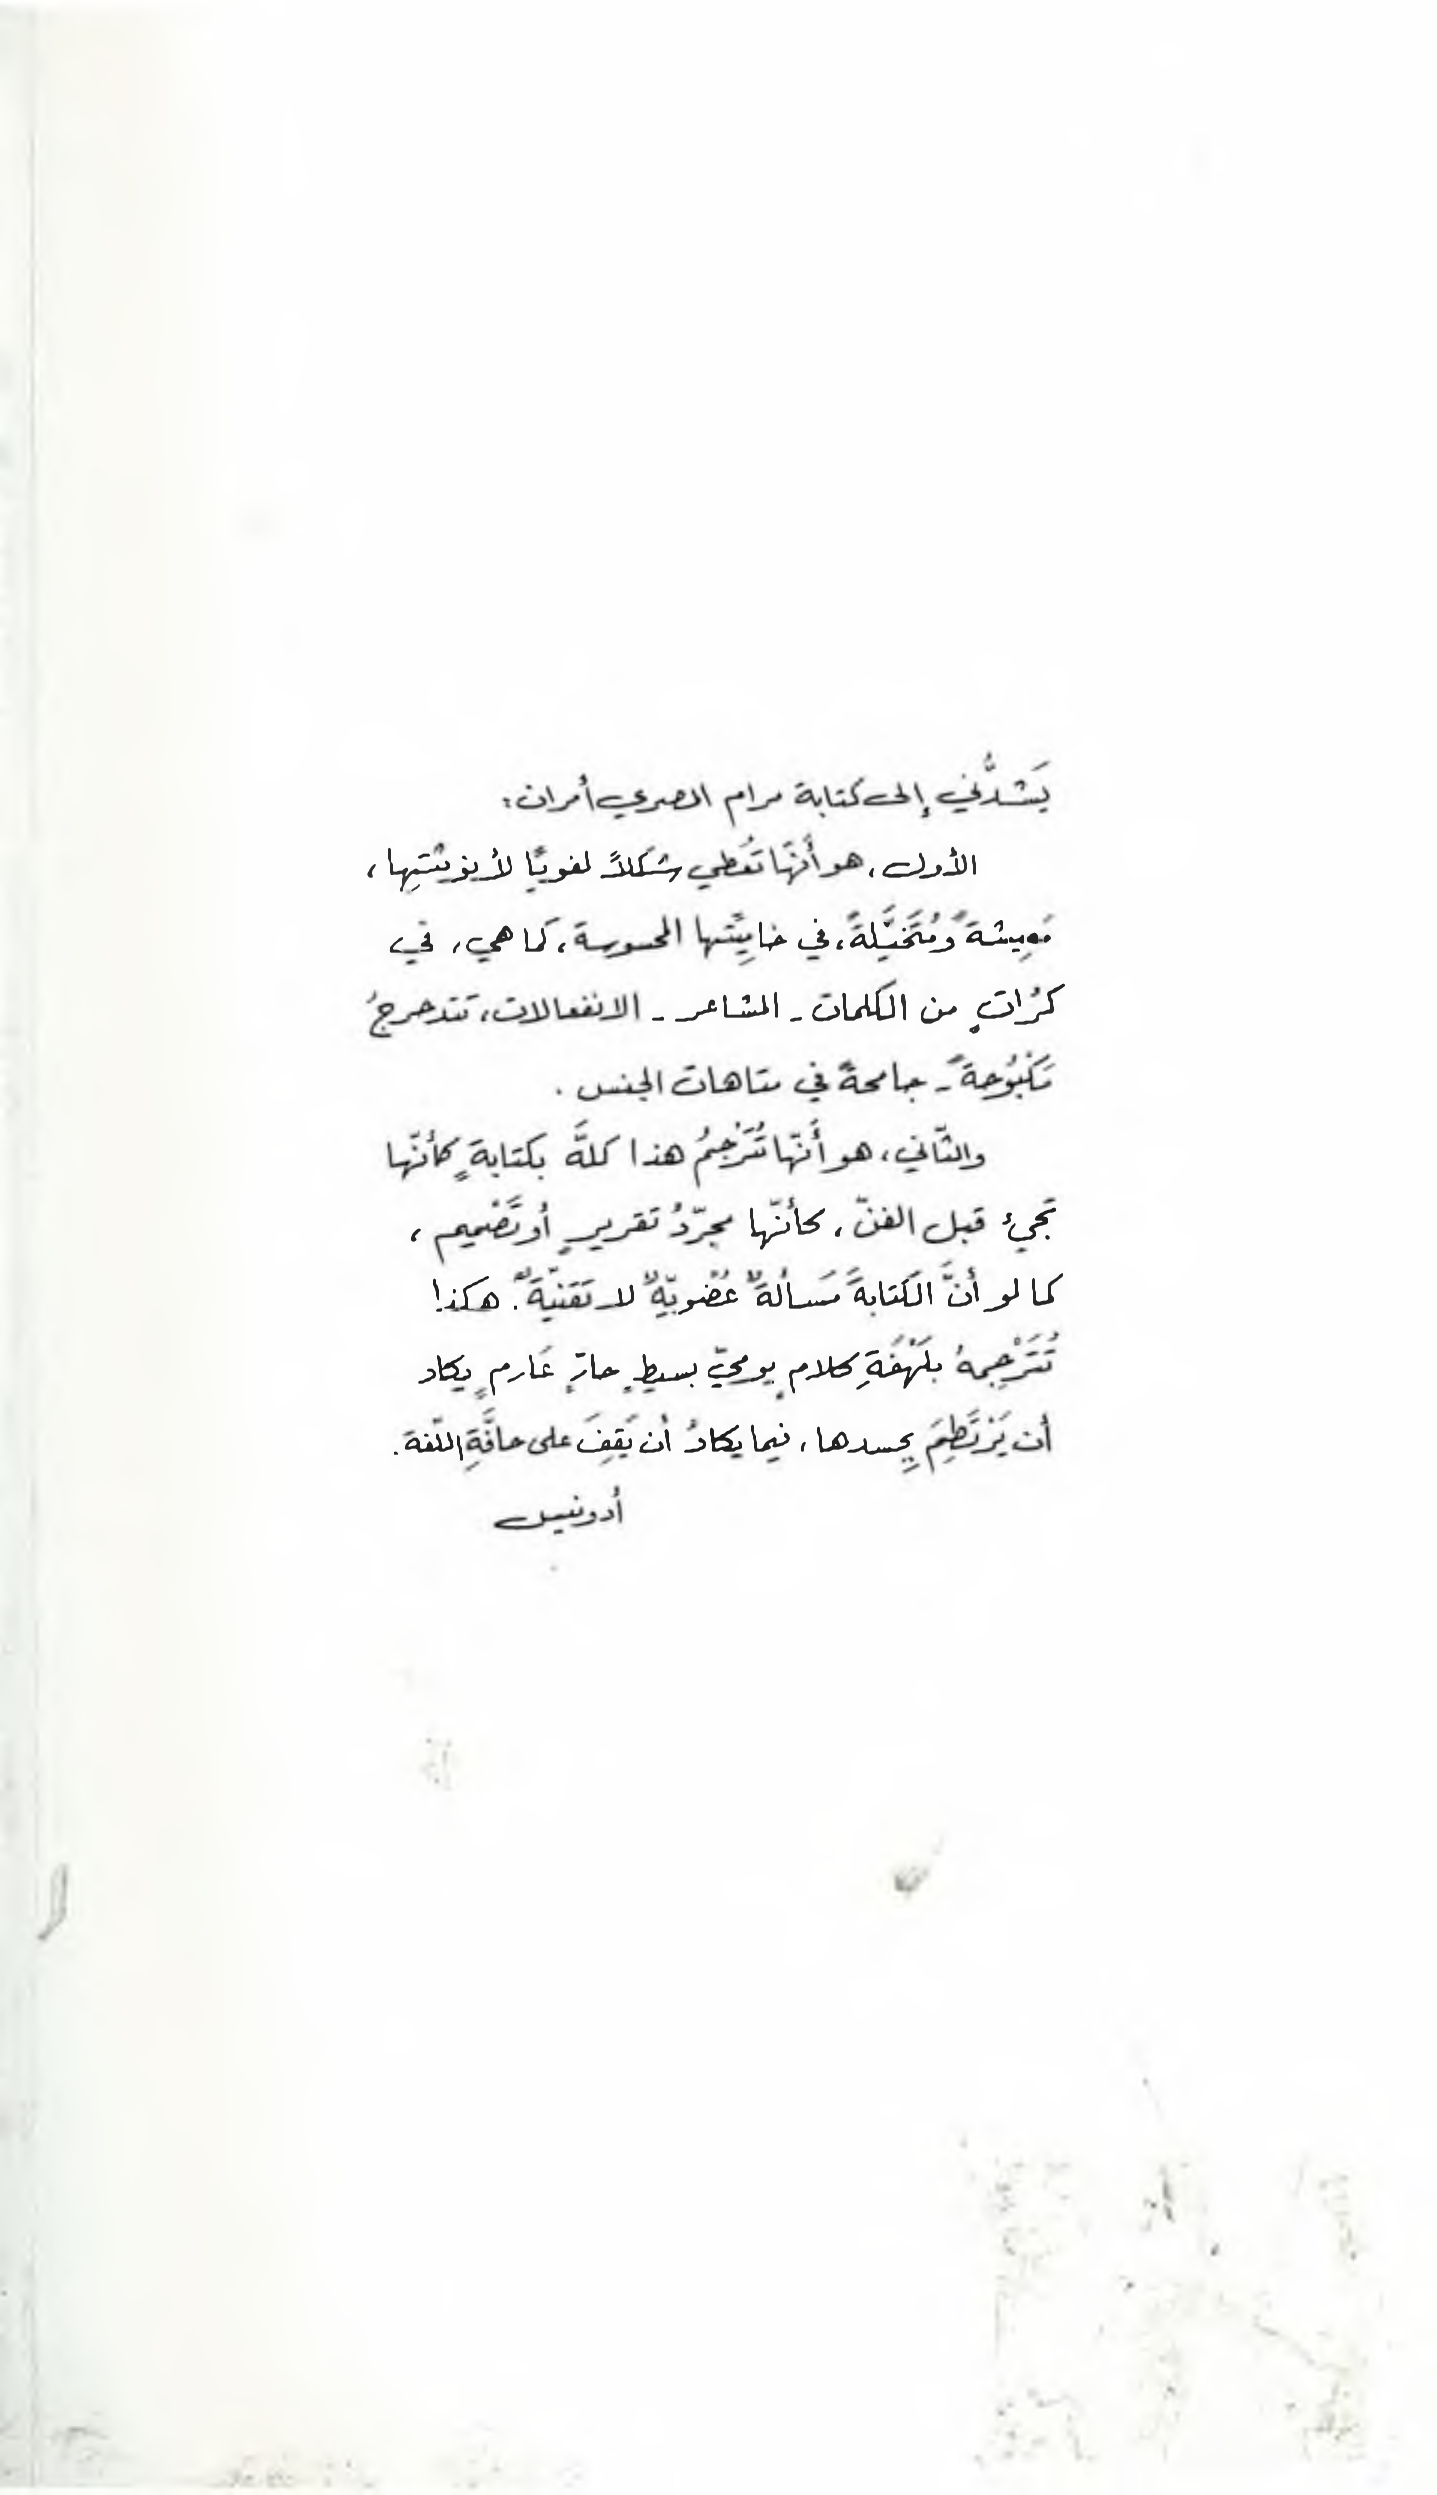 يَشدُّني إلى كتابة مرام المصري أمران:
الأول، هو أنَّها تُعطي شكلاً لغويًّا لأنوثتِها،
مَعِيشةً ومُتَخيَّلةً، في خاميّتها المحسوسة، كما هي، في
كُراتٍ من الكلمات - المشاعر - الانفعالات، تتدحرجُ
مَكْبُوحةً - جامحةً في متاهات الجنس.
والثّاني، هو أَنّها تُتَرْجِمُ هذا كلَّه بكتابةٍ كأنّها
تجيءُ قبل الفنّ، كأنّها مجرّدُ تقريرٍ أو
كما لو أنَّ الكتابةَ مَسألةٌ عُضْويّةٌ لا تَقَنيّةٌ. هكذا
تُتَرْجِمهُ بلَهْفَةِ كلامٍ يوميّ بسيطٍ حارّ عَارمٍ يكاد
أن يَرْتَطِمَ بِجسدها، فيما يكادُ أن يَقِفَ على حافَّةِ اللّغة.
أدونيس